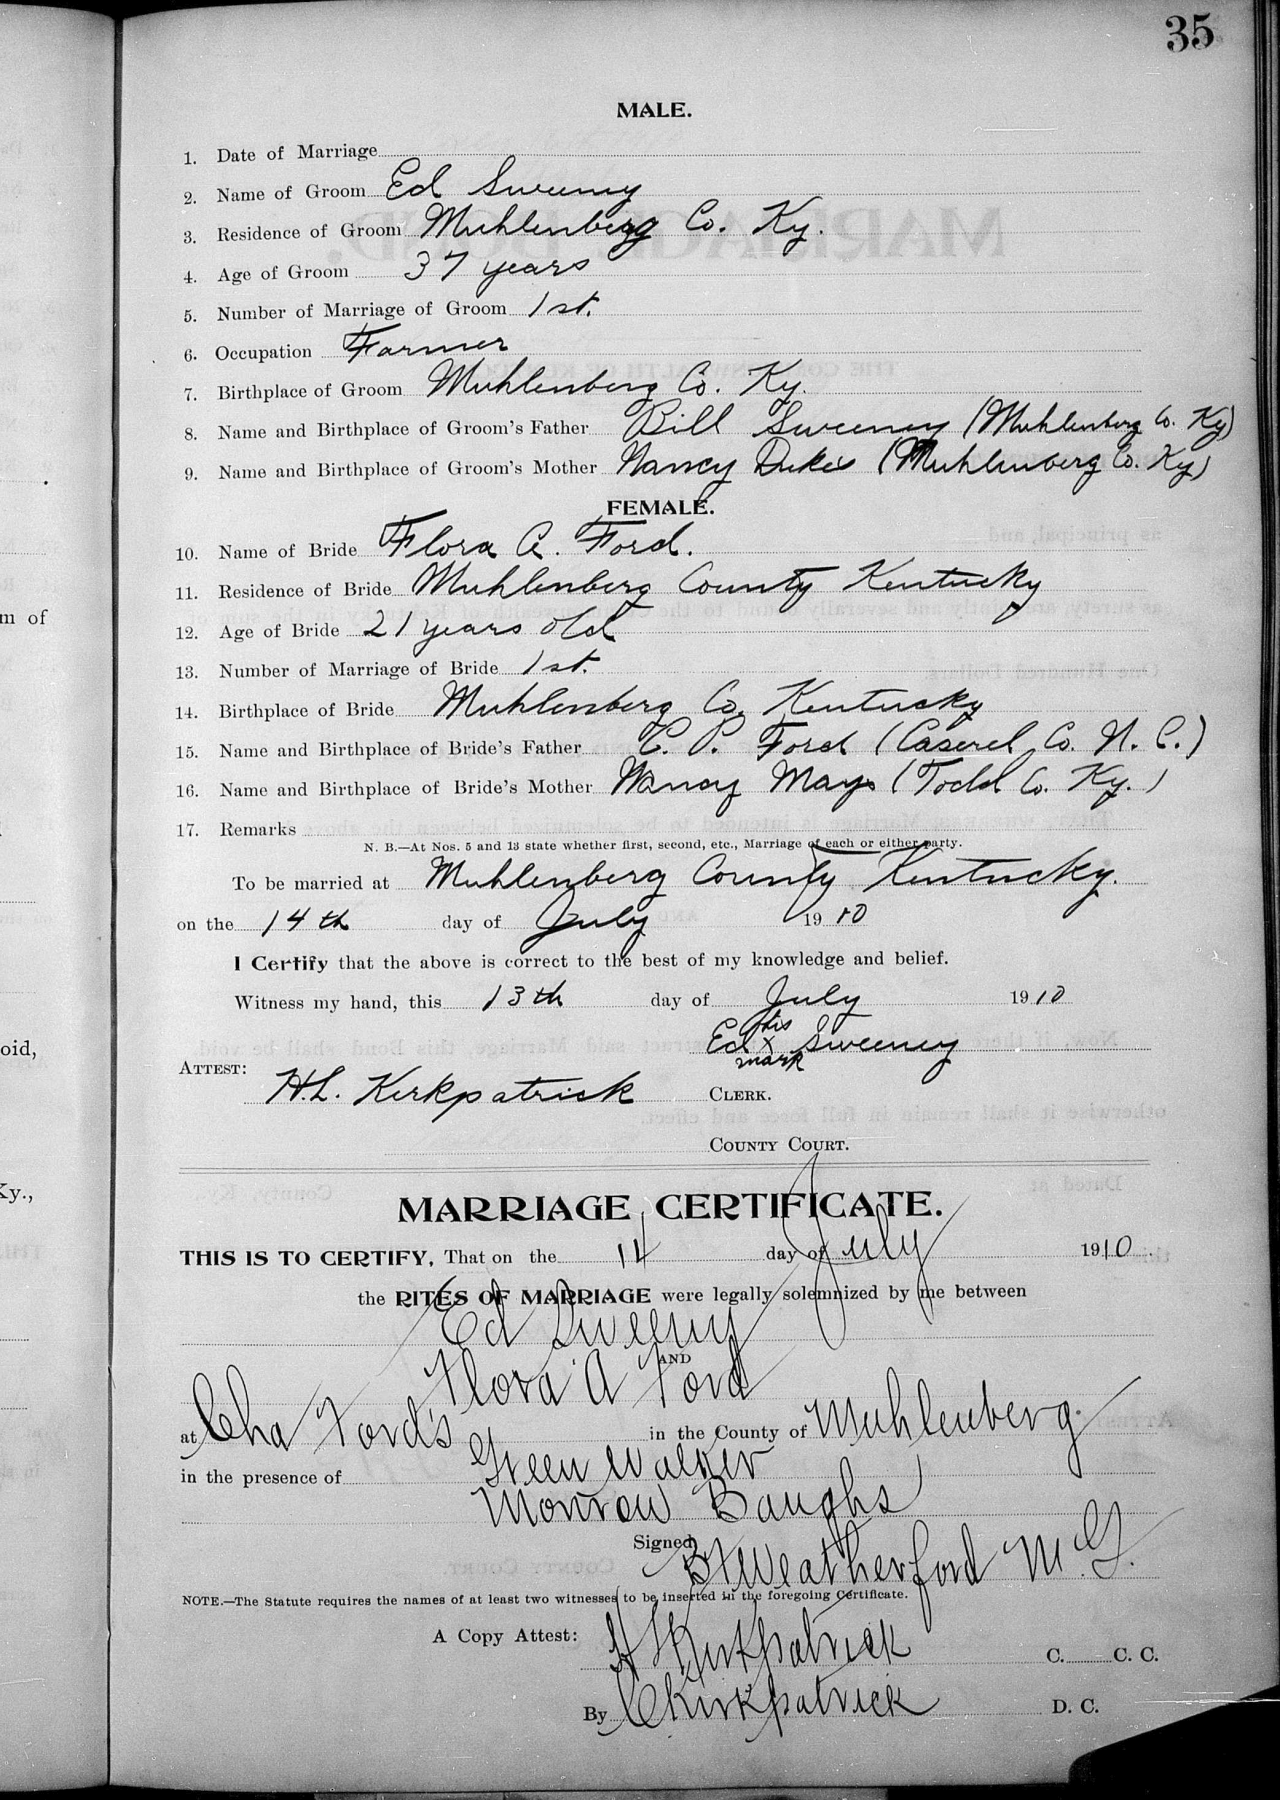 35
MALE.
1. Date of Marriage
2. Name of Groom Ed Sweeney
3. Residence of Groom Muhlenberg Co. Ky.
4. Age of Groom 37 years
5. Number of Marriage of Groom 1st.
6. Occupation Farmer
7. Birthplace of Groom Muhlenberg Co. Ky.
8. Name and Birthplace of Groom's Father Bill Sweeney (Muhlenberg Co. Ky)
9. Name and Birthplace of Groom's Mother Nancy Dukes (Muhlenberg Co. Ky)
FEMALE.
10. Name of Bride Flora A. Ford.
11. Residence of Bride Muhlenberg County Kentucky
12. Age of Bride 21 years old
13. Number of Marriage of Bride 1st.
14. Birthplace of Bride Muhlenberg Co. Kentucky
15. Name and Birthplace of Bride's Father C. P. Ford ( Co. N. C.)
16. Name and Birthplace of Bride's Mother Nancy Mays (Todd Co. Ky.)
17. Remarks
N. B.—At Nos. 5 and 13 state whether first, second, etc., Marriage of each or either party.
To be married at Muhlenberg County Kentucky.
on the 14th day of July 1910
I Certify that the above is correct to the best of my knowledge and belief.
Witness my hand, this 13th day of July 1910
his
Ed x Sweeney
mark
ATTEST:
H.L. Kirkpatrick CLERK.
COUNTY COURT.
MARRIAGE CERTIFICATE.
THIS IS TO CERTIFY, That on the 14 day of July 1910.
the RITES OF MARRIAGE were legally solemnized by me between
Ed Sweeny
AND
Flora A Ford
at Cha Ford's in the County of Muhlenberg.
in the presence of Green Walker
Monrow Baughs
Signed Weatherford M. G.
NOTE.—The Statute requires the names of at least two witnesses to be inserted in the foregoing Certificate.
A Copy Attest:
H L Kirkpatrick C. C. C.
By C Kirkpatrick D. C.
m of
oid,
Ky.,